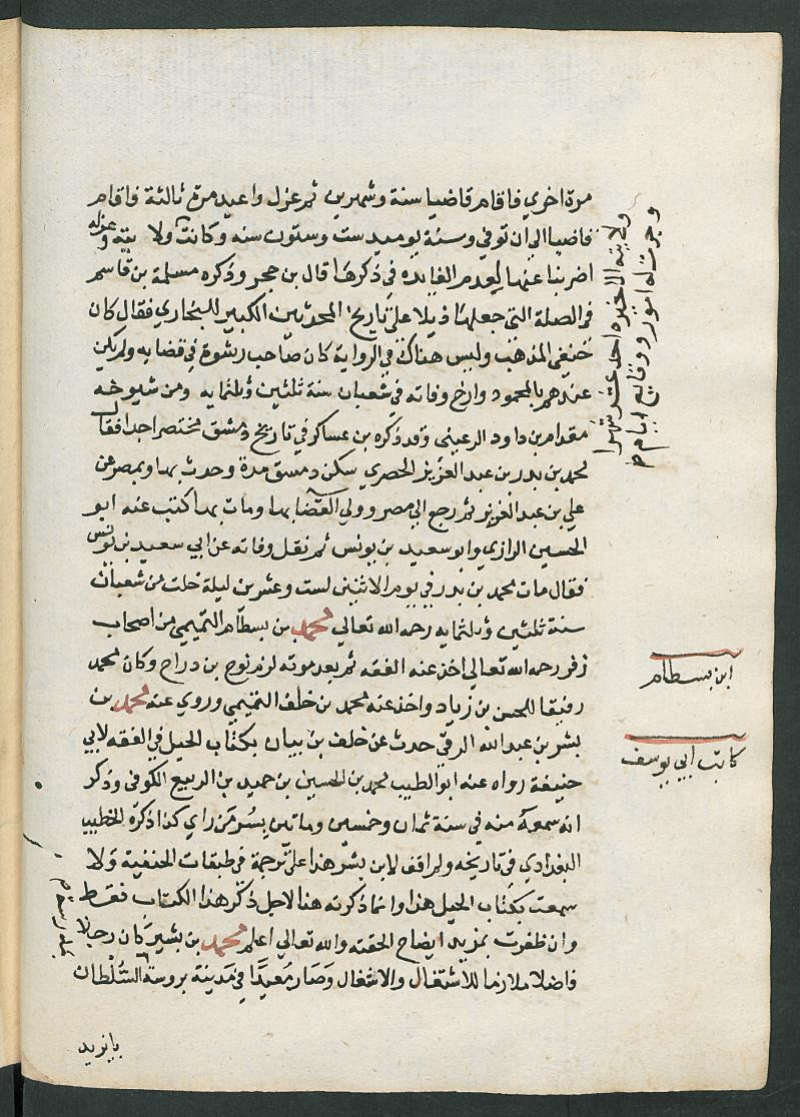 مرة اخري فاقام قاضيا سنة وشهرين ثم عزل واعيد مرة ثالثة فاقام
قاضيا الي ان توفي وسنه يوميد ست وستون سنه وكانت ولا يته وعزله
اضربنا عنها لعدم الفايده في ذكرها قال بن حجر وذكره مسلمة بن قاسم
في الصلة التي جعلها ذيلا علي تاريخ المحدثين الكبير للبخاري فقال كان
حنفي المذهب وليس هناك في الرواية كان صاحب رشوة في قضايه ولم يكن
عندهم بالمحمود وارخ وفاته في شعبان سنة ثلثين وثلثمايه ومن شيوخه
مقدام بن داود الرعيني وقد ذكره بن عساكر في تاريخ دمشق مختصرا جدا فقال
محمد بن بدر بن عبد العزيز المصري سكن دمسق مدة وحدث بها وبمصر عن
علي بن عبد العزيز ثم رجع الي مصر وولي القضا بها ومات بها كتب عنه ابو
الحسين الرازي وابو سعيد بن يونس ثم نقل وفاته عن ابي سعيد بن يونس
فقال مات محمد بن بدر في يوم الاثنين لست وعشرين ليلة خلت من شعبان
سنة ثلثين وثلثمايه رحمه الله تعالي محمد بن بسطام التميمي من اصحاب
زفر رحمه الله تعالي اخذ عنه الفقه ثم بعد موته لزم نوح بن دراج وكان محمد
رفيقا للحسن بن زياد واخذ عنه محمد بن خلف التميمي وروي عنه محمد بن
بشر بن عبد الله الرقي حدث عن خلف بن بيان بكتاب الحيل في الفقه لابي
حنيفة رواه عنه ابو الطيب محمد بن الحسين بن حميد بن الربيع الكوفي وذكر
انه سمعه منه في سنة ثمان وخمسين وماتين بسر من راي كذا ذكره الخطيب
البغدادي في تاريخه ولم اقف لابن بشر هذا علي ترجمة في طبقات الحنفية ولا
سمعت بكتاب الحيل هذا وانما ذكرته هنا لاجل ذكر هذا الكتاب فقط
وان ظفرت بمزيد ايضاح الحقته والله تعالي اعلم محمد بن بشير كان رجلا
فاضلا ملازما للاشتغال والاشغال وصار معيدا في مدينة بروسة السلطان
بايزيد
وجرت له امور ووقايع ايام
ولايته الاخيره احد عشر شهرا
ابن بسطام
كاتب ابي يوسف